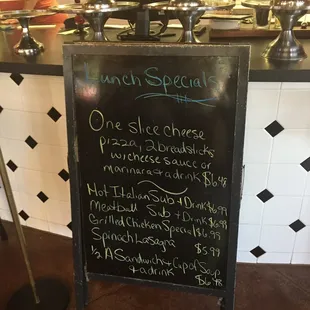 Lunch Specials
One slice cheese
pizza, 2 breadsticks
w/cheese sauce or
marinara + a drink $6.48
Hot Italian Sub + Drink $6.99
Meatball Sub + Drink $6.99
Grilled Chicken Special $6.99
Spinach Lasagna $5.99
1/2 A Sandwich + Cup of Soup
+ a drink $6.48